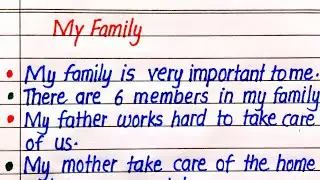 My Family
My family is very important to me.
There are 6 members in my family
My father works hard to take care
of us.
My mother take care of the home